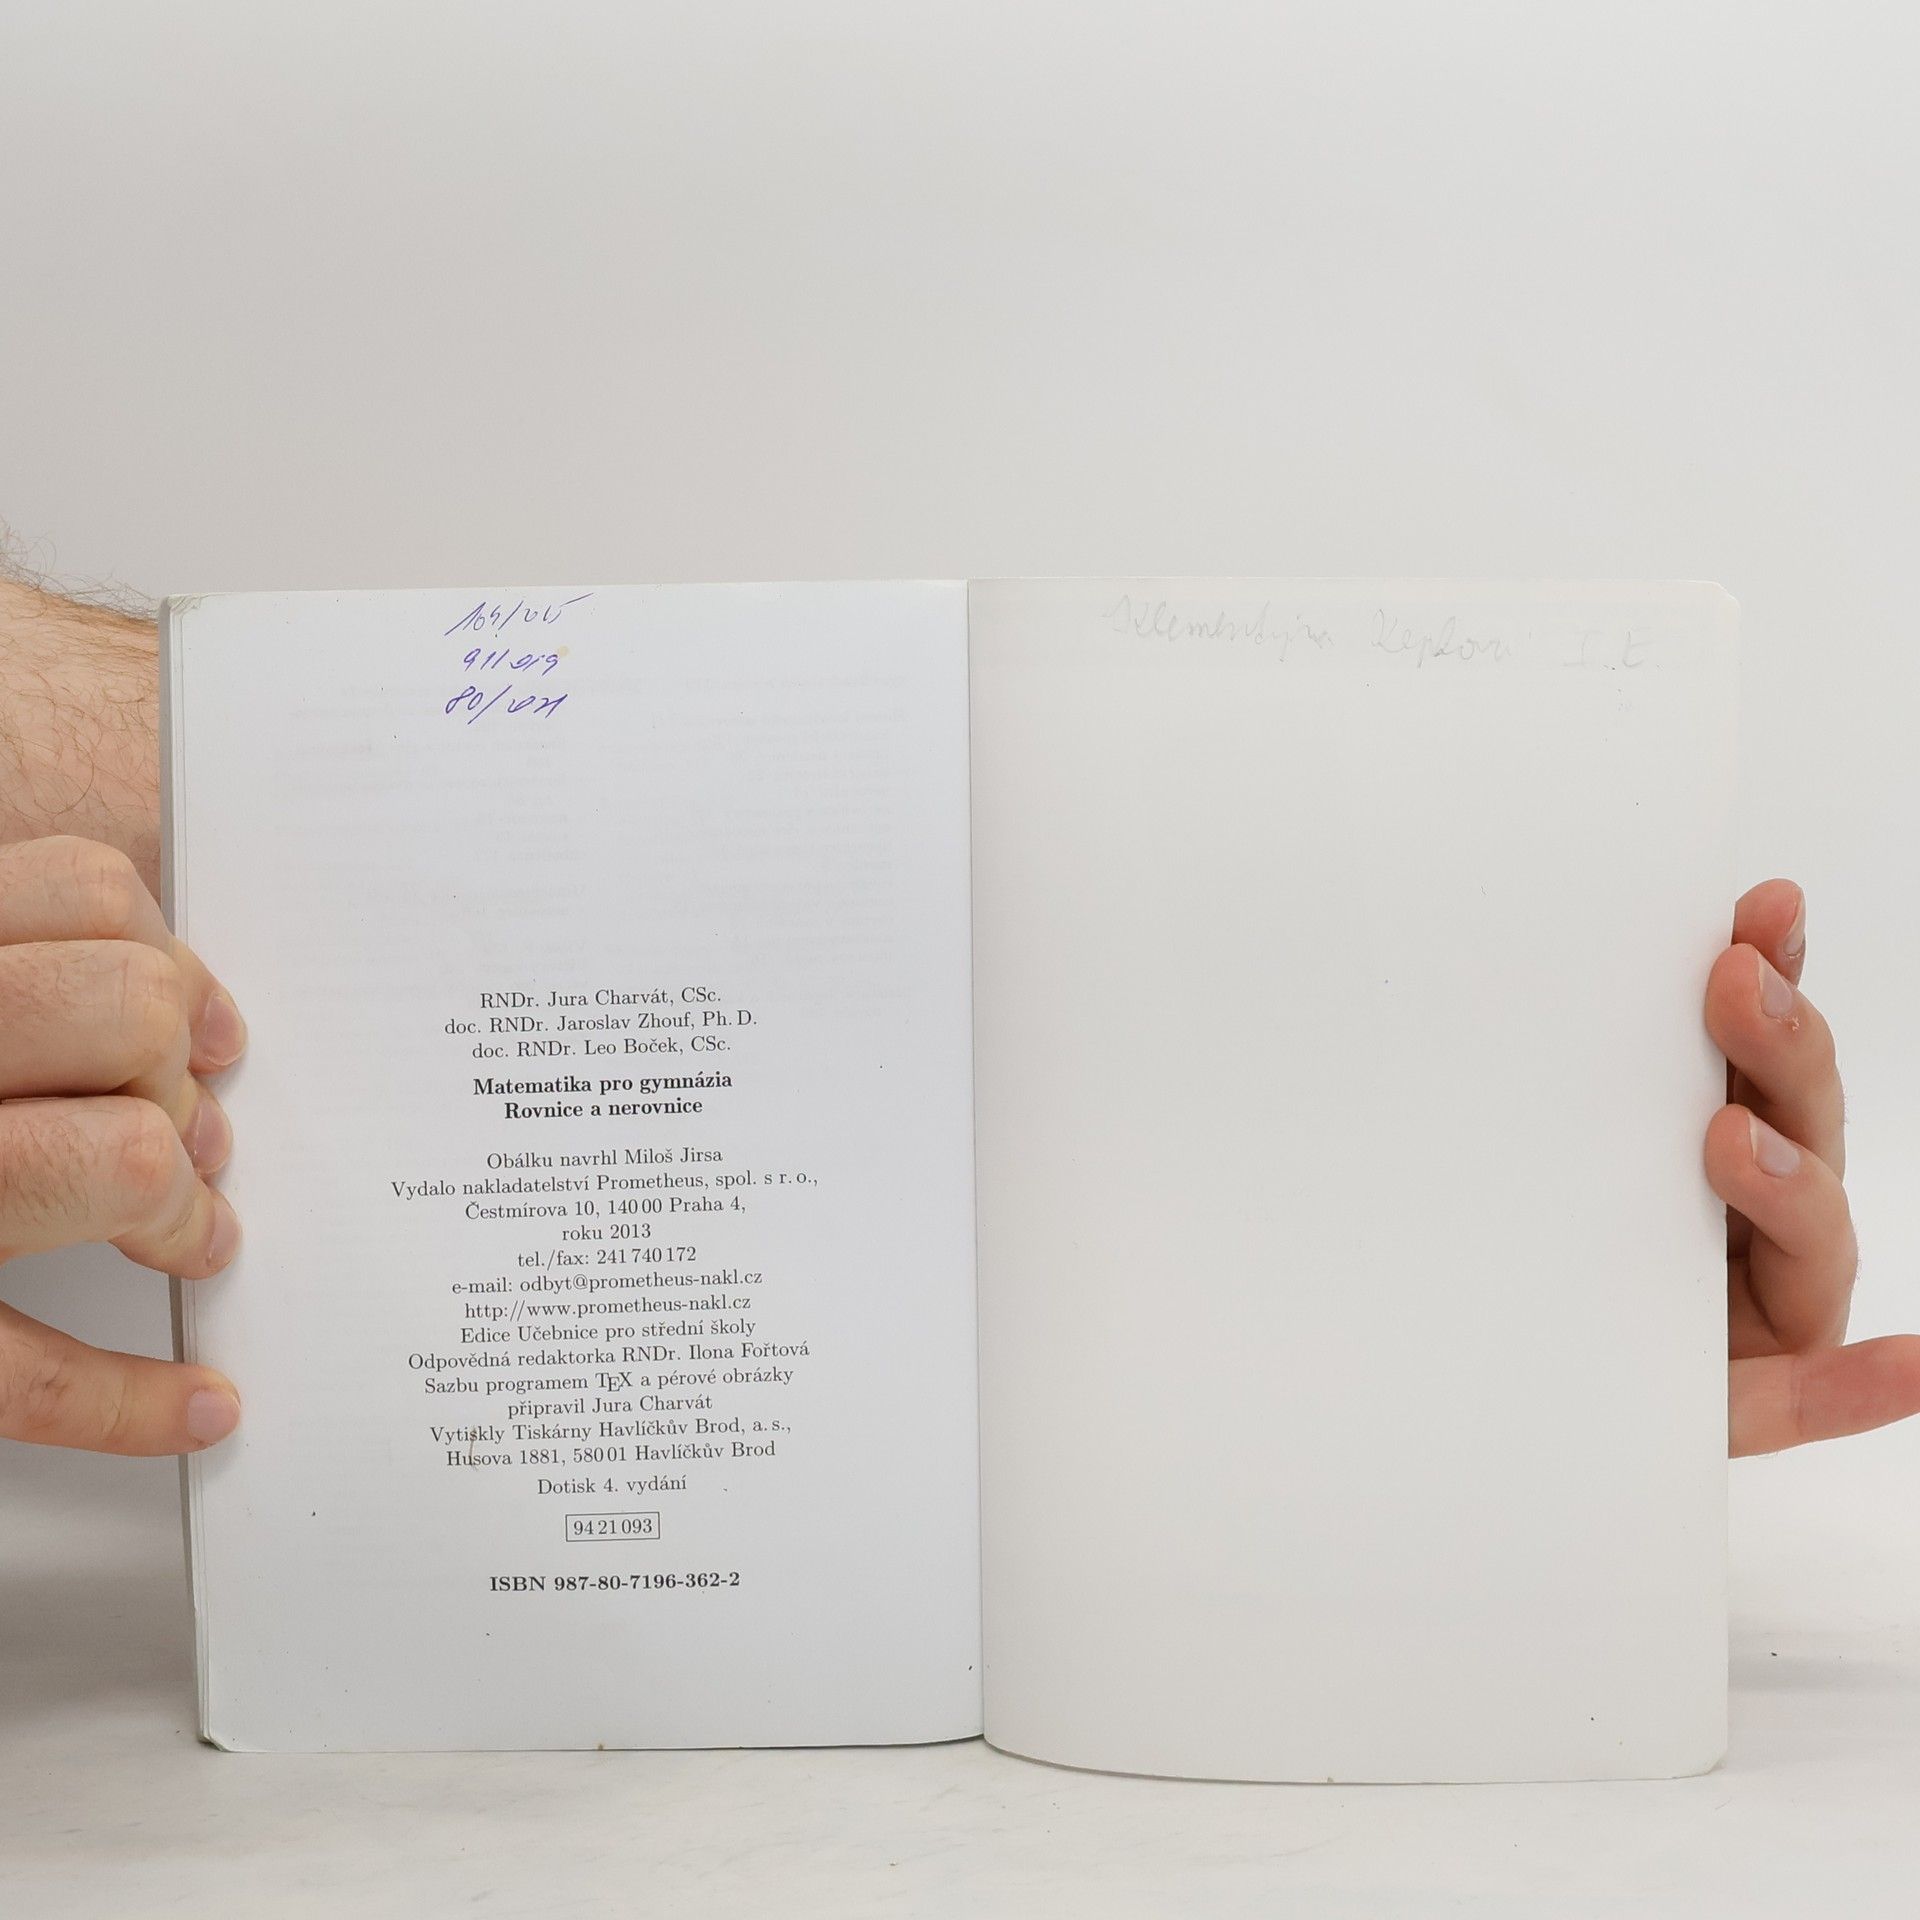 80/2021
RNDr. Jura Charvát, CSc.
doc. RNDr. Jaroslav Zhouf, Ph. D.
doc. RNDr. Leo Boček, CSc.
Matematika pro gymnázia
Rovnice a nerovnice
Obálku navrhl Miloš Jirsa
Vydalo nakladatelství Prometheus, spol. s r. o.,
Čestmírova 10, 140 00 Praha 4,
roku 2013
tel./fax: 241 740 172
e-mail: odbyt@prometheus-nakl.cz
http://www.prometheus-nakl.cz
Edice Učebnice pro střední školy
Odpovědná redaktorka RNDr. Ilona Fořtová
Sazbu programem TEX a pérové obrázky
připravil Jura Charvát
Vytiskly Tiskárny Havlíčkův Brod, a. s.,
Husova 1881, 580 01 Havlíčkův Brod
Dotisk 4. vydání
94 21 093
ISBN 987-80-7196-362-2
Klementýna I. E